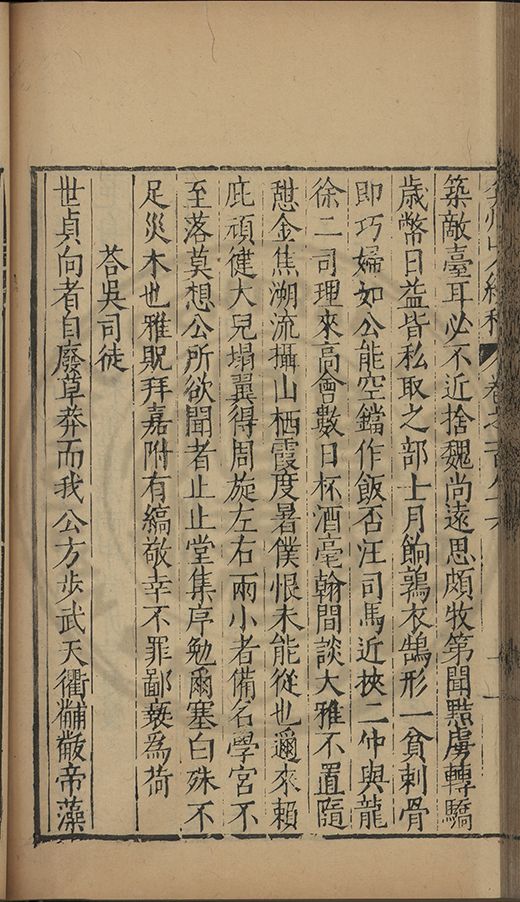 弇州山人續稿 卷之一百八十六
築敵臺耳必不近捨魏尚遠思頗牧第聞黠虜轉驕
歲幣日益皆私取之部士月餉鶉衣鵠形一貧刺骨
即巧婦如公能空鐺作飯否汪司馬近挾二仲與龍
徐二司理來高會數日杯酒毫翰間談大雅不置隨
憇金焦溯流攝山栖霞度暑僕恨未能從也邇來賴
庇頑健大兒塌翼得周旋左右兩小者備名學宮不
至落莫想公所欲聞者止止堂集序勉爾塞白殊不
足災木也雅貺拜嘉附有縞敬幸不罪鄙䙝爲荷
荅吳司徒
世貞向者自廢草莽而我公方步武天衢黼黻帝藻